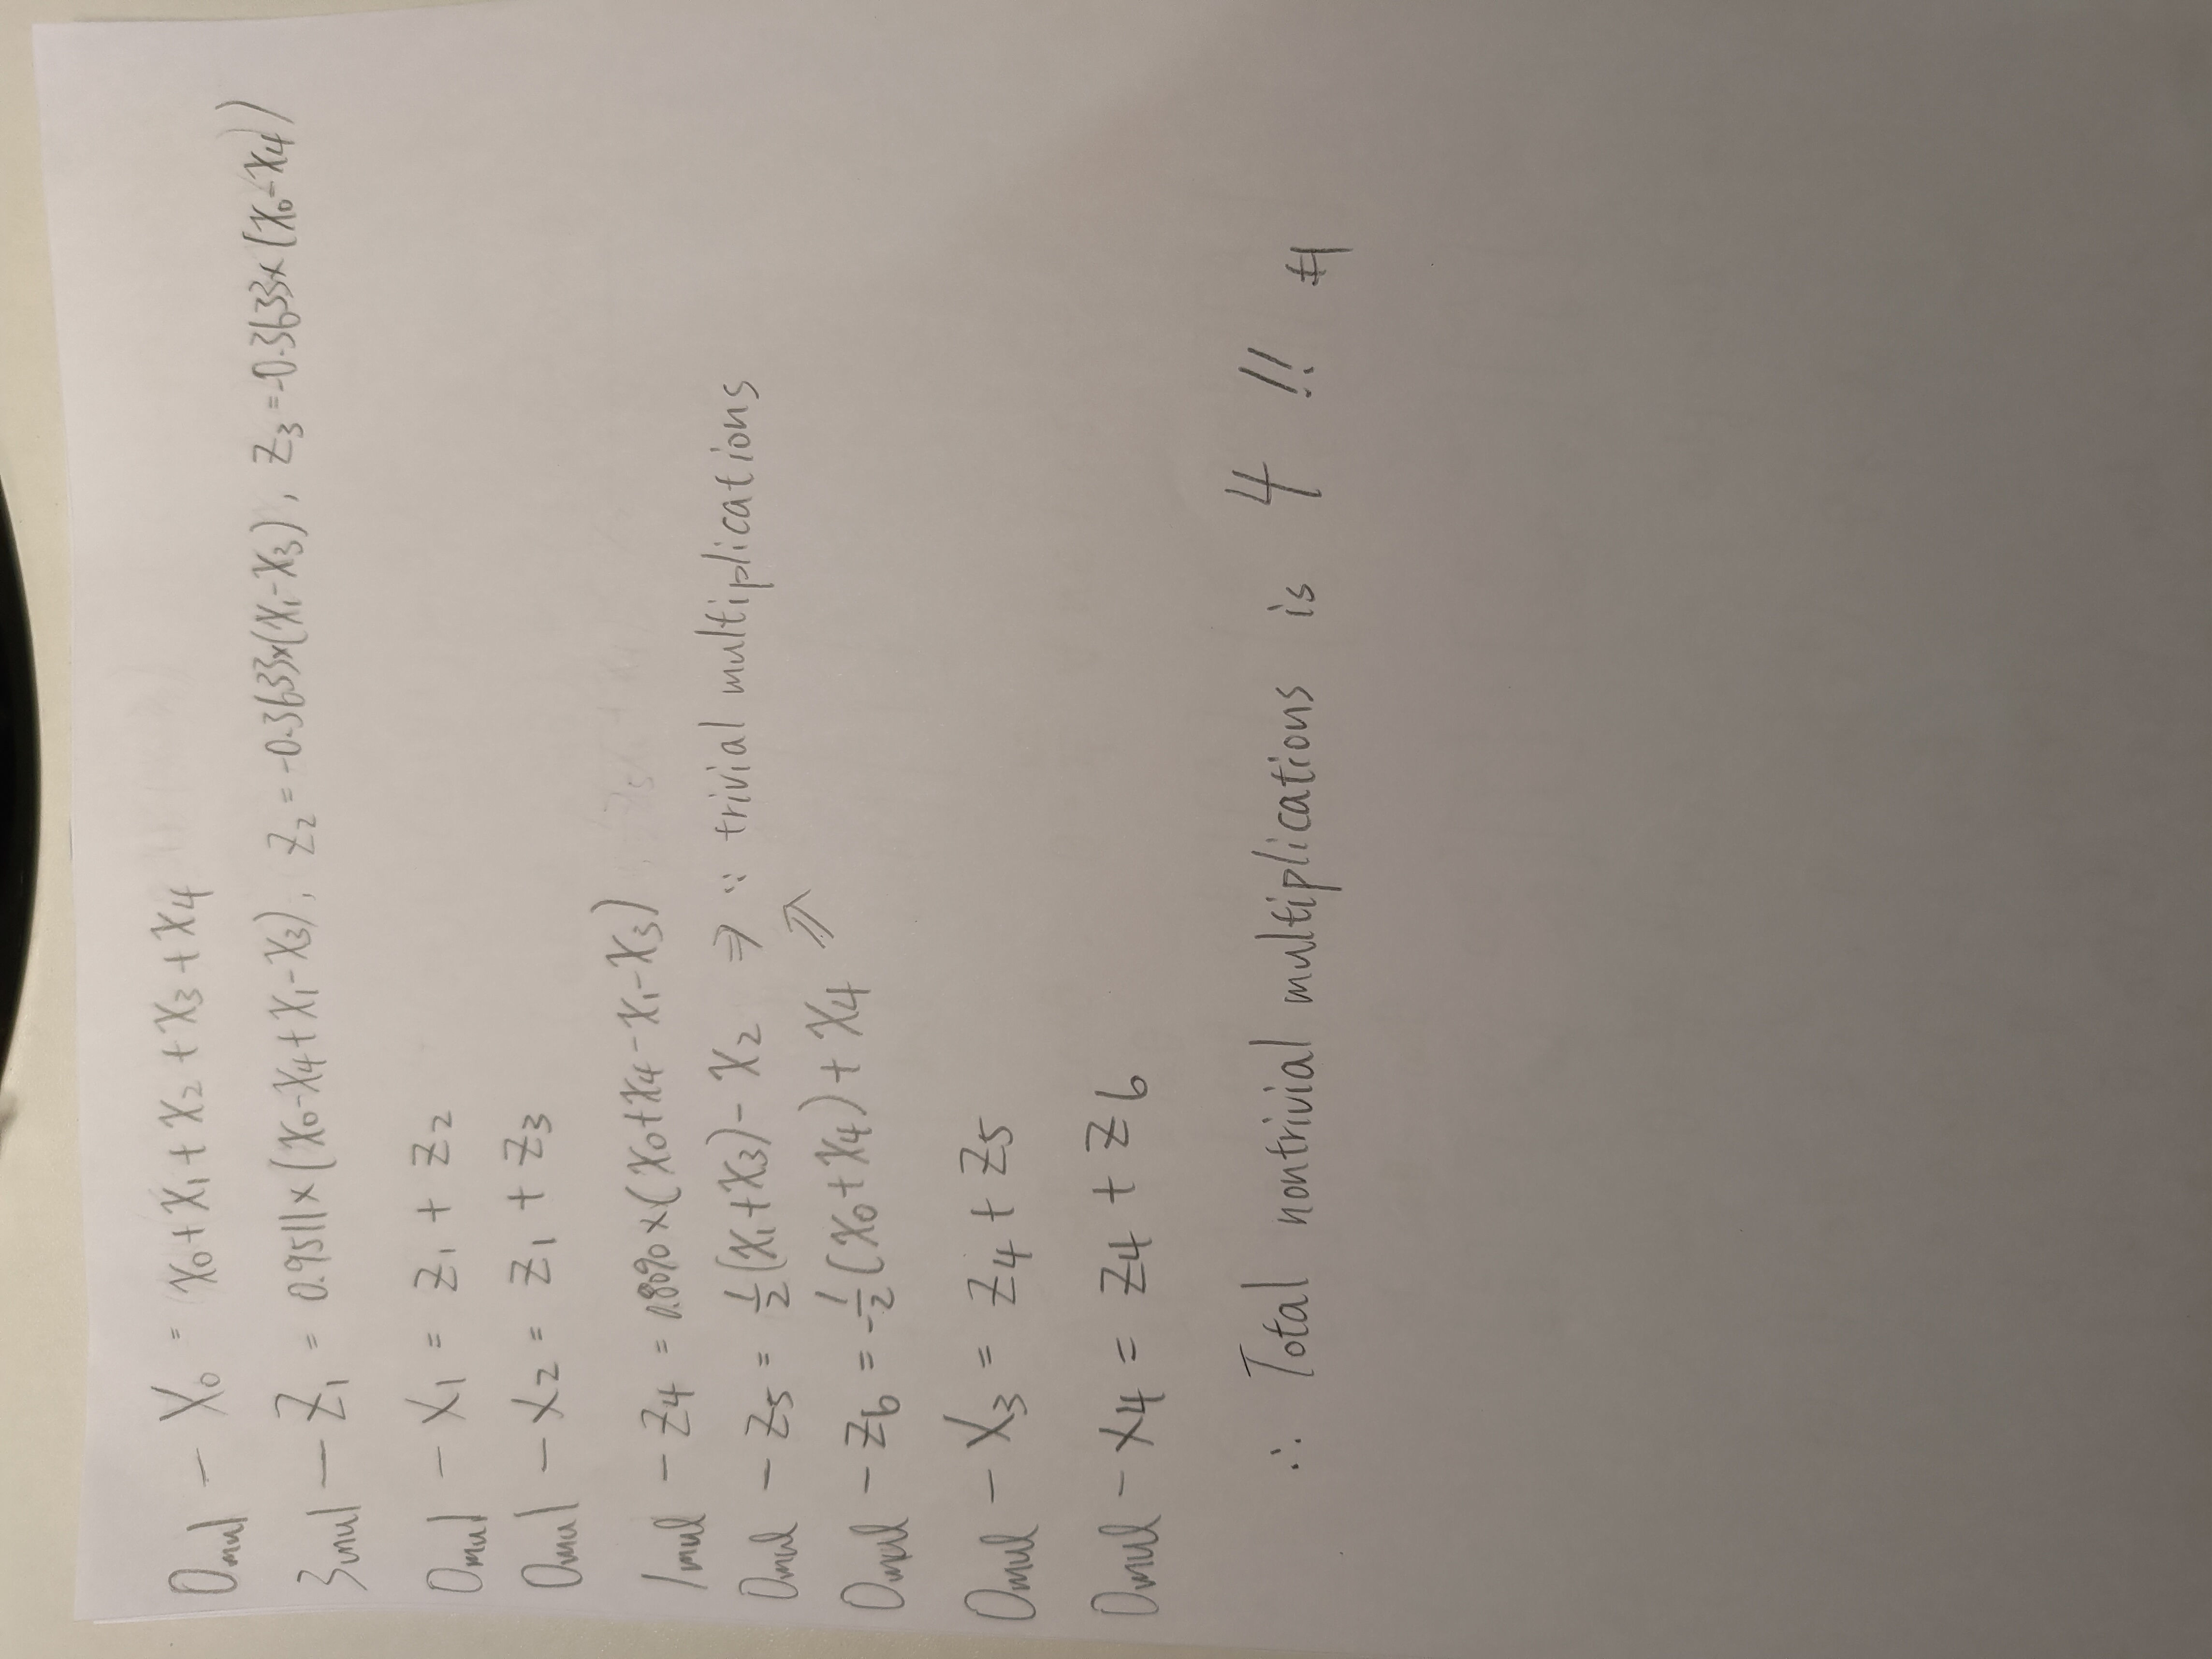 0mul - X₀ = x₀+x₁+x₂+x₃+x₄
3mul - Z₁ = 0.9511×(x₀-x₄+x₁-x₃), Z₂=-0.3633×(x₁-x₃), Z₃=-0.3633×(x₀-x₄)
0mul - X₁ = Z₁ + Z₂
0mul - X₂ = Z₁ + Z₃
1mul - Z₄ = 0.8090×(x₀+x₄-x₁-x₃)
0mul - Z₅ = ½(x₁+x₃)-x₂ ⇒ ∵ trivial multiplications
0mul - Z₆ = -½(x₀+x₄)+x₄ ⇗
0mul - X₃ = Z₄ + Z₅
0mul - X₄ = Z₄ + Z₆
∴ Total nontrivial multiplications is 4 !! #